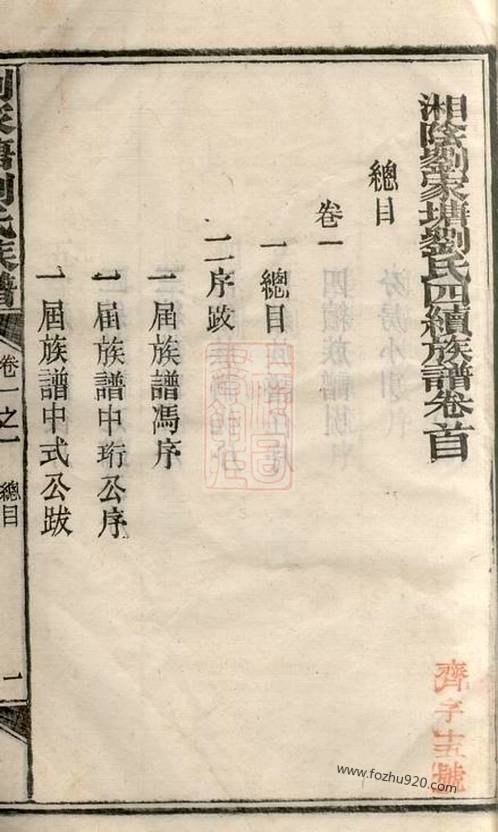 湘陰劉家塘劉氏四續族譜卷首
總目
卷一
一總目
二序跋
一屆族譜馮序
一屆族譜中珩公序
一屆族譜中式公跋
劉家塘劉氏族譜
卷一之一
總目
一
齊字十五號
www.fozhu920.com